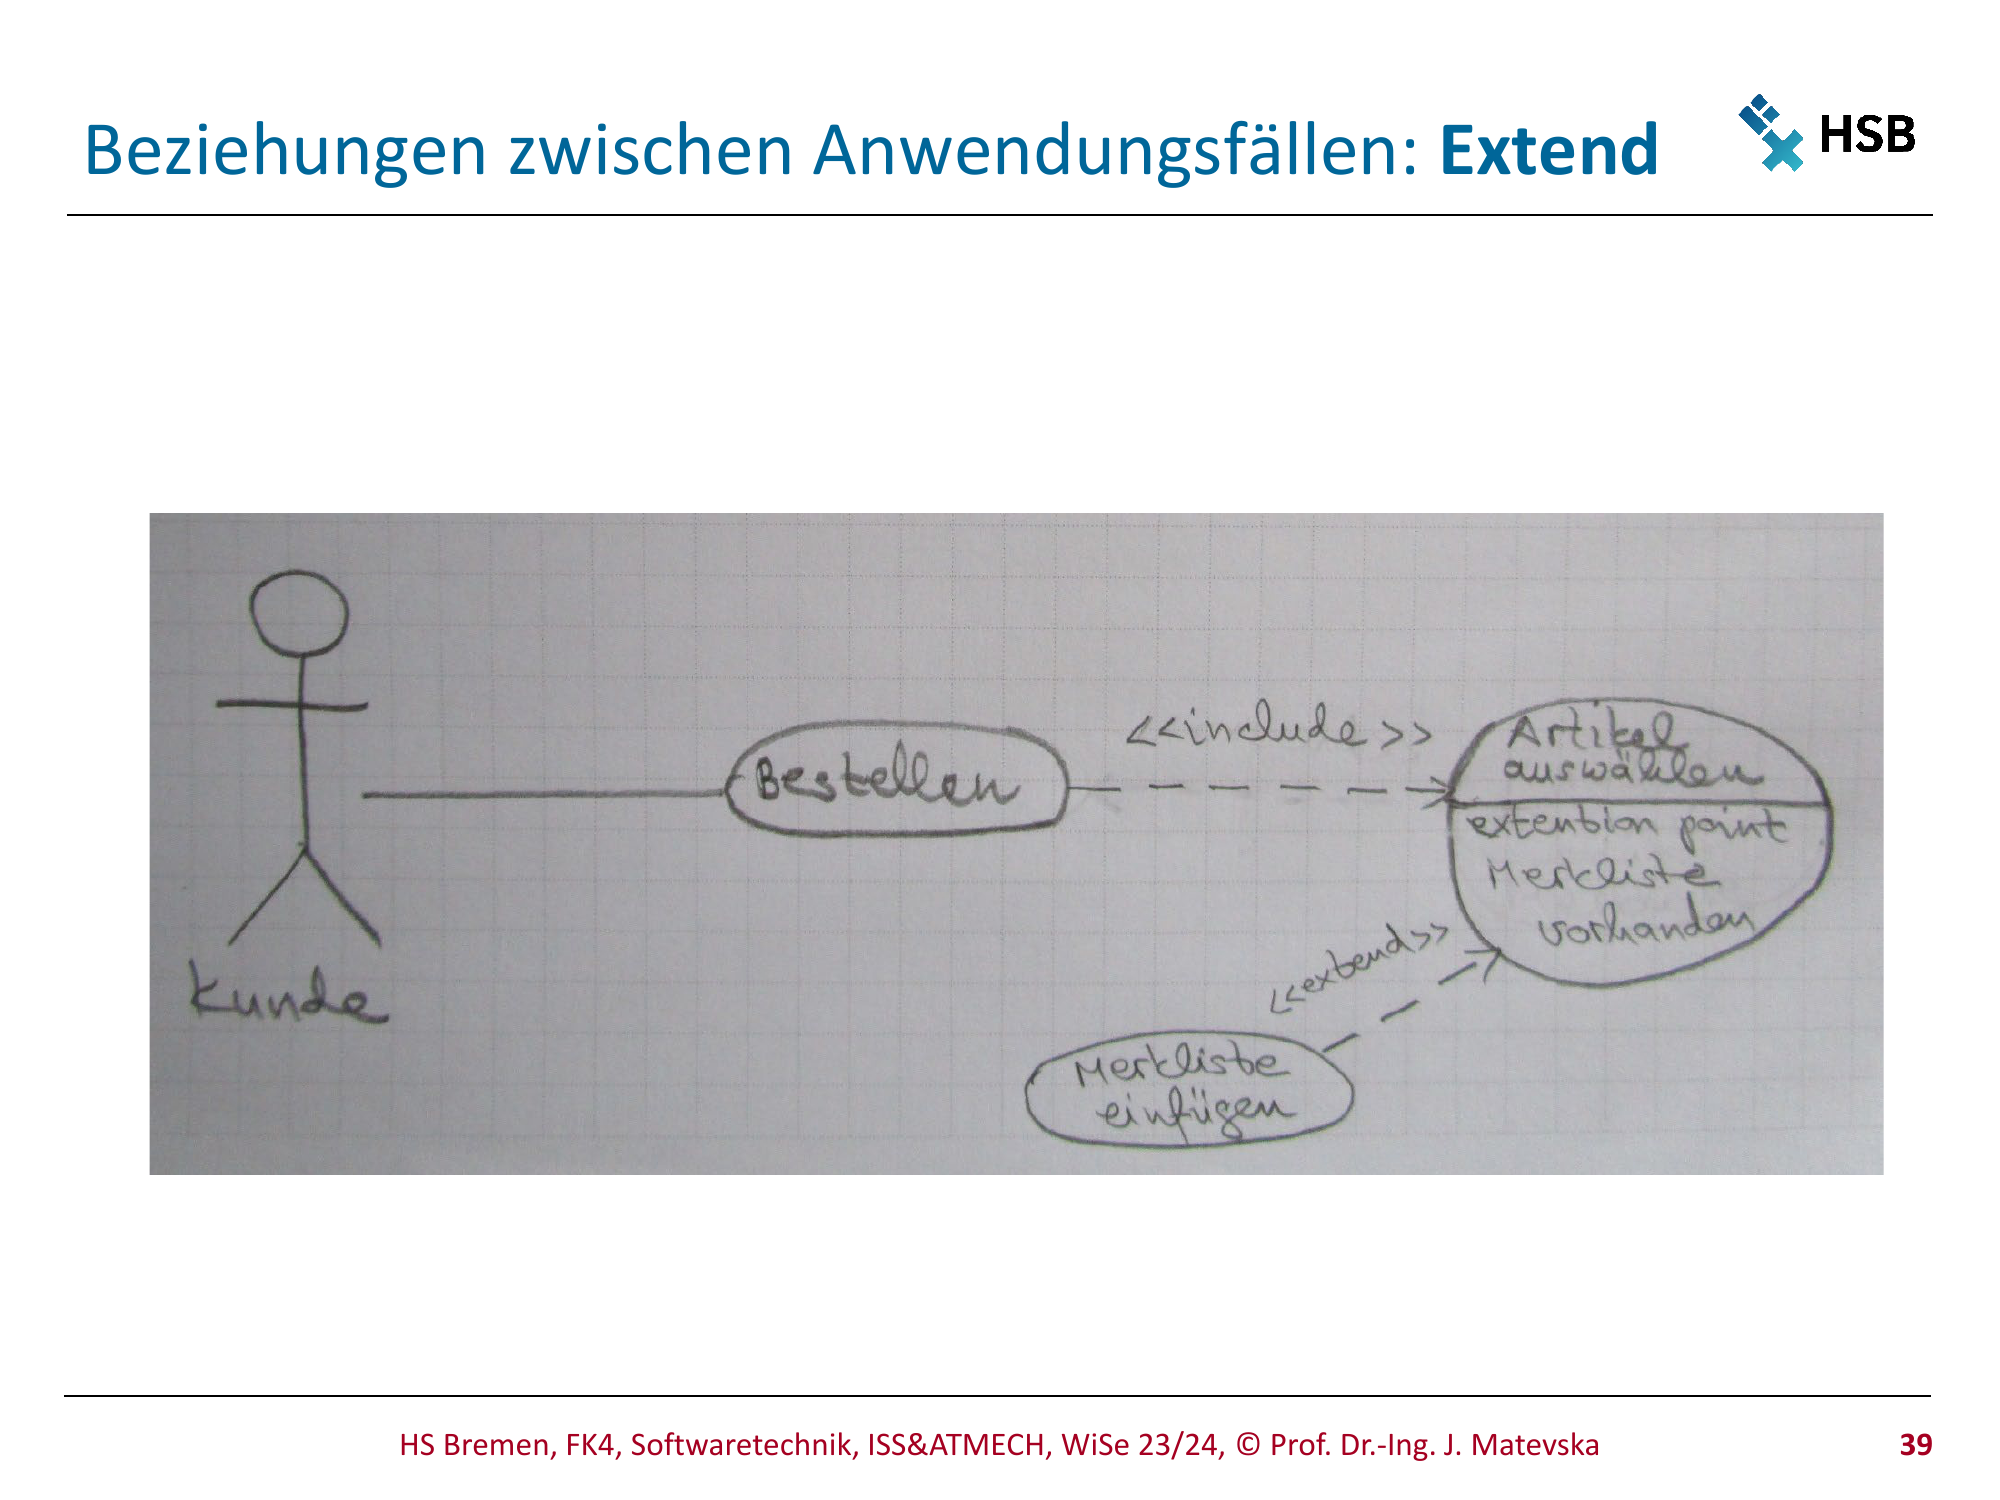 Beziehungen zwischen Anwendungsfällen: Extend
HSB
<<include>>
Artikel
auswählen
Bestellen
extention point
Merkliste
vorhanden
<<extend>>
Kunde
Merkliste
einfügen
HS Bremen, FK4, Softwaretechnik, ISS&ATMECH, WiSe 23/24, © Prof. Dr.-Ing. J. Matevska
39